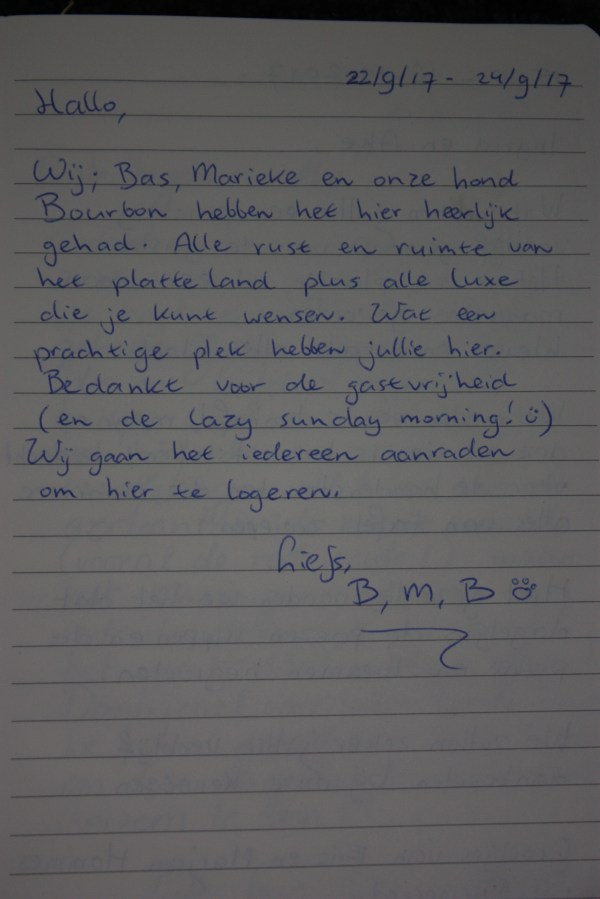 22/9/17 - 24/9/17
Hallo,
Wij; Bas, Marieke en onze hond
Bourbon hebben het hier heerlijk
gehad. Alle rust en ruimte van
het platteland plus alle luxe
die je kunt wensen. Wat een
prachtige plek hebben jullie hier.
Bedankt voor de gastvrijheid
(en de lazy sunday morning! ü)
Wij gaan het iedereen aanraden
om hier te logeren.
Liefs,
B, M, B